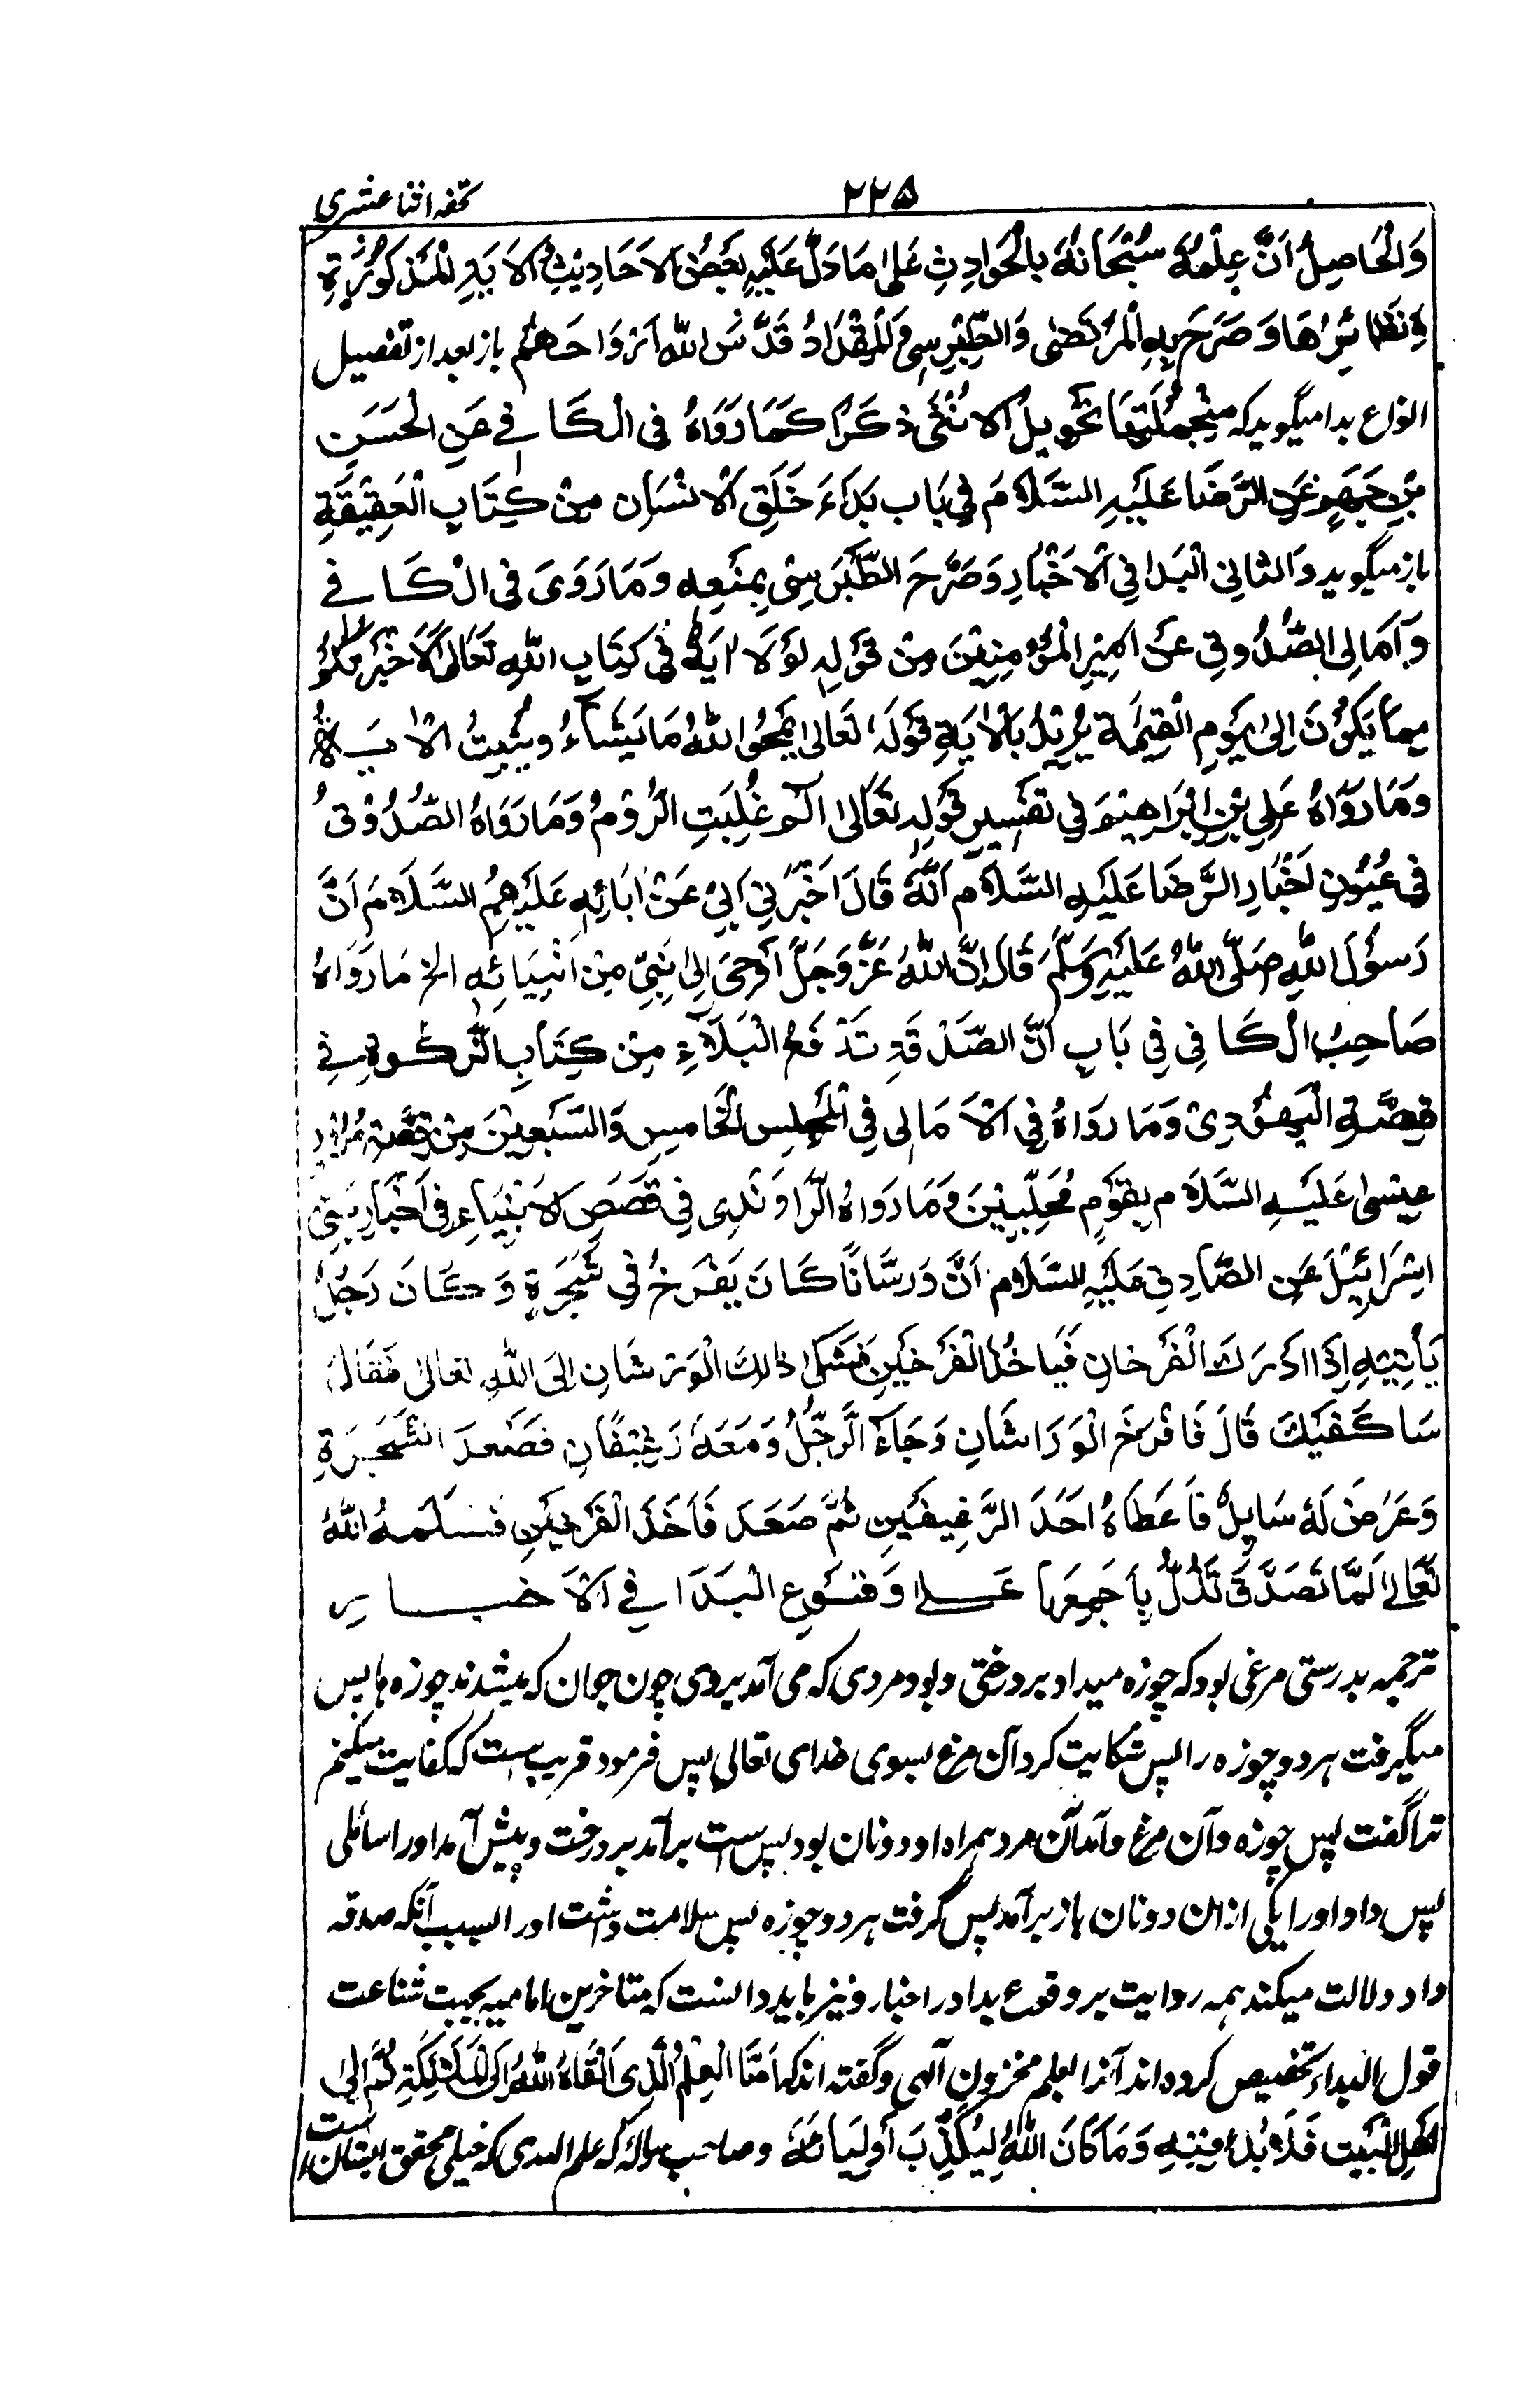 تحفه اثنا عشری
۲۲۵
وَالْحَاصِلُ اَنَّ عِلْمَهٗ سُبْحَانَهٗ بِالْحَوَادِثِ عَلٰى مَا دَلَّ عَلَيْهِ بَعْضُ الْاَحَادِيْثِ الْاٰيَةِ الْمَذْكُوْرَةِ
وَنَظَائِرُهَا وَصَرَّحَ بِهِ الْمُرْتَضٰى وَالطَّبْرِسِيُّ وَالْمِقْدَادُ قَدَّسَ اللّٰهُ اَرْوَاحَهُمْ باز بعد از تفصیل
انواع بدا میگوید که مِنْجُمْلَتِهَا تَحْوِيْلُ الْاُنْثٰى ذَكَرًا كَمَا رَوَاهُ فِى الْكَافِي عَنِ الْحَسَنِ
بْنِ جَهْمٍ عَنِ الرِّضَا عَلَيْهِ السَّلَامَ فِي بَابِ بَدَاءَ خَلْقِ الْاِنْسَانِ مِنْ كِتَابِ الْعَقِيْقَةِ
باز میگوید وَالثَّانِي الْبَدَا فِي الْاَخْبَارِ وَصَرَّحَ الطَّبْرَسِيْ بِمَنْعِهٖ وَمَا رَوٰى فِى الْكَافِي
وَاَمَالِى الصَّدُوقِ عَنْ اَمِيْرِ الْمُؤْمِنِيْنَ مِنْ قَوْلِهٖ لَوْلَا اٰيَةٌ فِي كِتَابِ اللّٰهِ تَعَالٰى لَاَخْبَرْتُكُمْ
بِمَا يَكُوْنَ اِلٰى يَوْمِ الْقِيٰمَةِ يُرِيْدُ بِالْاٰيَةِ قَوْلَهٗ تَعَالٰى يَمْحُوا اللّٰهُ مَا يَشَآءُ وَيُثْبِتُ الْاٰيَةَ
وَمَا رَوَاهُ عَلِيُّ بْنِ اِبْرَاهِيْمَ فِي تَفْسِيْرِ قَوْلِهٖ تَعَالٰى الٓمٓ غُلِبَتِ الرُّوْمُ وَمَا رَوَاهُ الصَّدُوْقُ
فِى عُيُوْنِ اَخْبَارِ الرِّضَا عَلَيْهِ السَّلَامِ اَنَّهٗ قَالَ اَخْبَرَنِيْ اَبِيْ عَنْ اٰبَائِهٖ عَلَيْهِمُ السَّلَامَ اَنَّ
رَسُوْلَ اللّٰهِ صَلَّى اللّٰهُ عَلَيْهِ وَسَلَّمَ قَالَ اِنَّ اللّٰهَ عَزَّ وَجَلَّ اَوْحٰى اِلٰى نَبِيٍّ مِنْ اَنْبِيَائِهٖ الخ مَا رَوَاهُ
صَاحِبُ الْكَافِي فِي بَابِ اَنَّ الصَّدَقَةِ تَدْفَعُ الْبَلَآءِ مِنْ كِتَابِ الزَّكٰوةِ فِي
قِصَّةِ الْيَهُوْدِيْ وَمَا رَوَاهُ فِى الْاَمَالِى فِى الْمَجْلِسِ الْخَامِسِ وَالسَّبْعِيْنَ مِنْ قِصَّةِ مُرُوْرِ
عِيْسٰى عَلَيْهِ السَّلَامِ بِقَوْمٍ مُجَلِّبِيْنَ وَمَا رَوَاهُ الرَّاوَنْدِى فِي قَصَصِ الْاَنْبِيَاءِ فِى اَخْبَارِ بَنِيْ
اِسْرَائِيْلَ عَنِ الصَّادِقِ عَلَيْهِ السَّلَامِ اَنَّ وَرَشَانًا كَانَ يَفْرَخُ فِي شَجَرَةٍ وَكَانَ رَجُلٌ
يَأْتِيْهِ اِذَا اَدْرَكَ الْفَرْخَانِ فَيَاْخُذُ الْفَرْخَيْنِ فَشَكٰى ذٰلِكَ الْوَرْشَانِ اِلَى اللّٰهِ تَعَالٰى فَقَالَ
سَاَكْفِيْكَ قَالَ فَاَفْرَخَ الْوَرَاشَانِ وَجَآءَ الرَّجُلُ وَمَعَهٗ رَغِيْفَانِ فَصَعِدَ الشَّجَرَةِ
وَعَرَضَ لَهٗ سَايِلٌ فَاَعْطَاهُ اَحَدَ الرَّغِيْفَيْنِ ثُمَّ صَعَدَ فَاَخَذَ الْفَرْخَيْنِ فَسَلَّمَهُ اللّٰهُ
تَعَالٰى لَمَّا تَصَدَّقَ تَدُلُّ بِاَجْمَعِهَا عَلٰى وَقُوْعِ الْبَدَا فِي الْاَخْبَارِ
ترجمه بدرستی مرغی بود که چوزه میداد بر درختی و بود مردی که می آمد بر وی چون جوان که میشدند چوزه ها پس
میگرفت هر دو چوزه را پس شکایت کرد آن مرغ بسوی خدای تعالی پس فرمود قریب است که کفایت میکنم
ترا گفت پس چوزه داد آن مرغ و آمد آن مرد همراه او دو نان بود پس است برآمد بر درخت و پیش آمد او را سائلی
پس داد او را یکی از ان دو نان باز برآمد پس گرفت هر دو چوزه پس سلامت داشت او را بسبب آنکه صدقه
داد دلالت میکند همه روایت بر وقوع بدا در اخبار و نیز باید دانست که متاخرین امامیه بجهت شناعت
قول البداء تخصیص کرده اند آنرا بعلم مخزون آلهی و گفته اند که اَمَّا الْعِلْمُ الَّذِى اَلْقَاهُ اللّٰهُ اِلَى الْمَلٰئِكَةِ ثُمَّ اِلٰى
اَهْلِ الْبَيْتِ فَلَا بُدَّ فِيْهِ وَمَا كَانَ اللّٰهُ لِيُكَذِّبَ اَوْلِيَائَهٗ وصاحب رساله که علم الهدی که خیلی محقق ایشان است